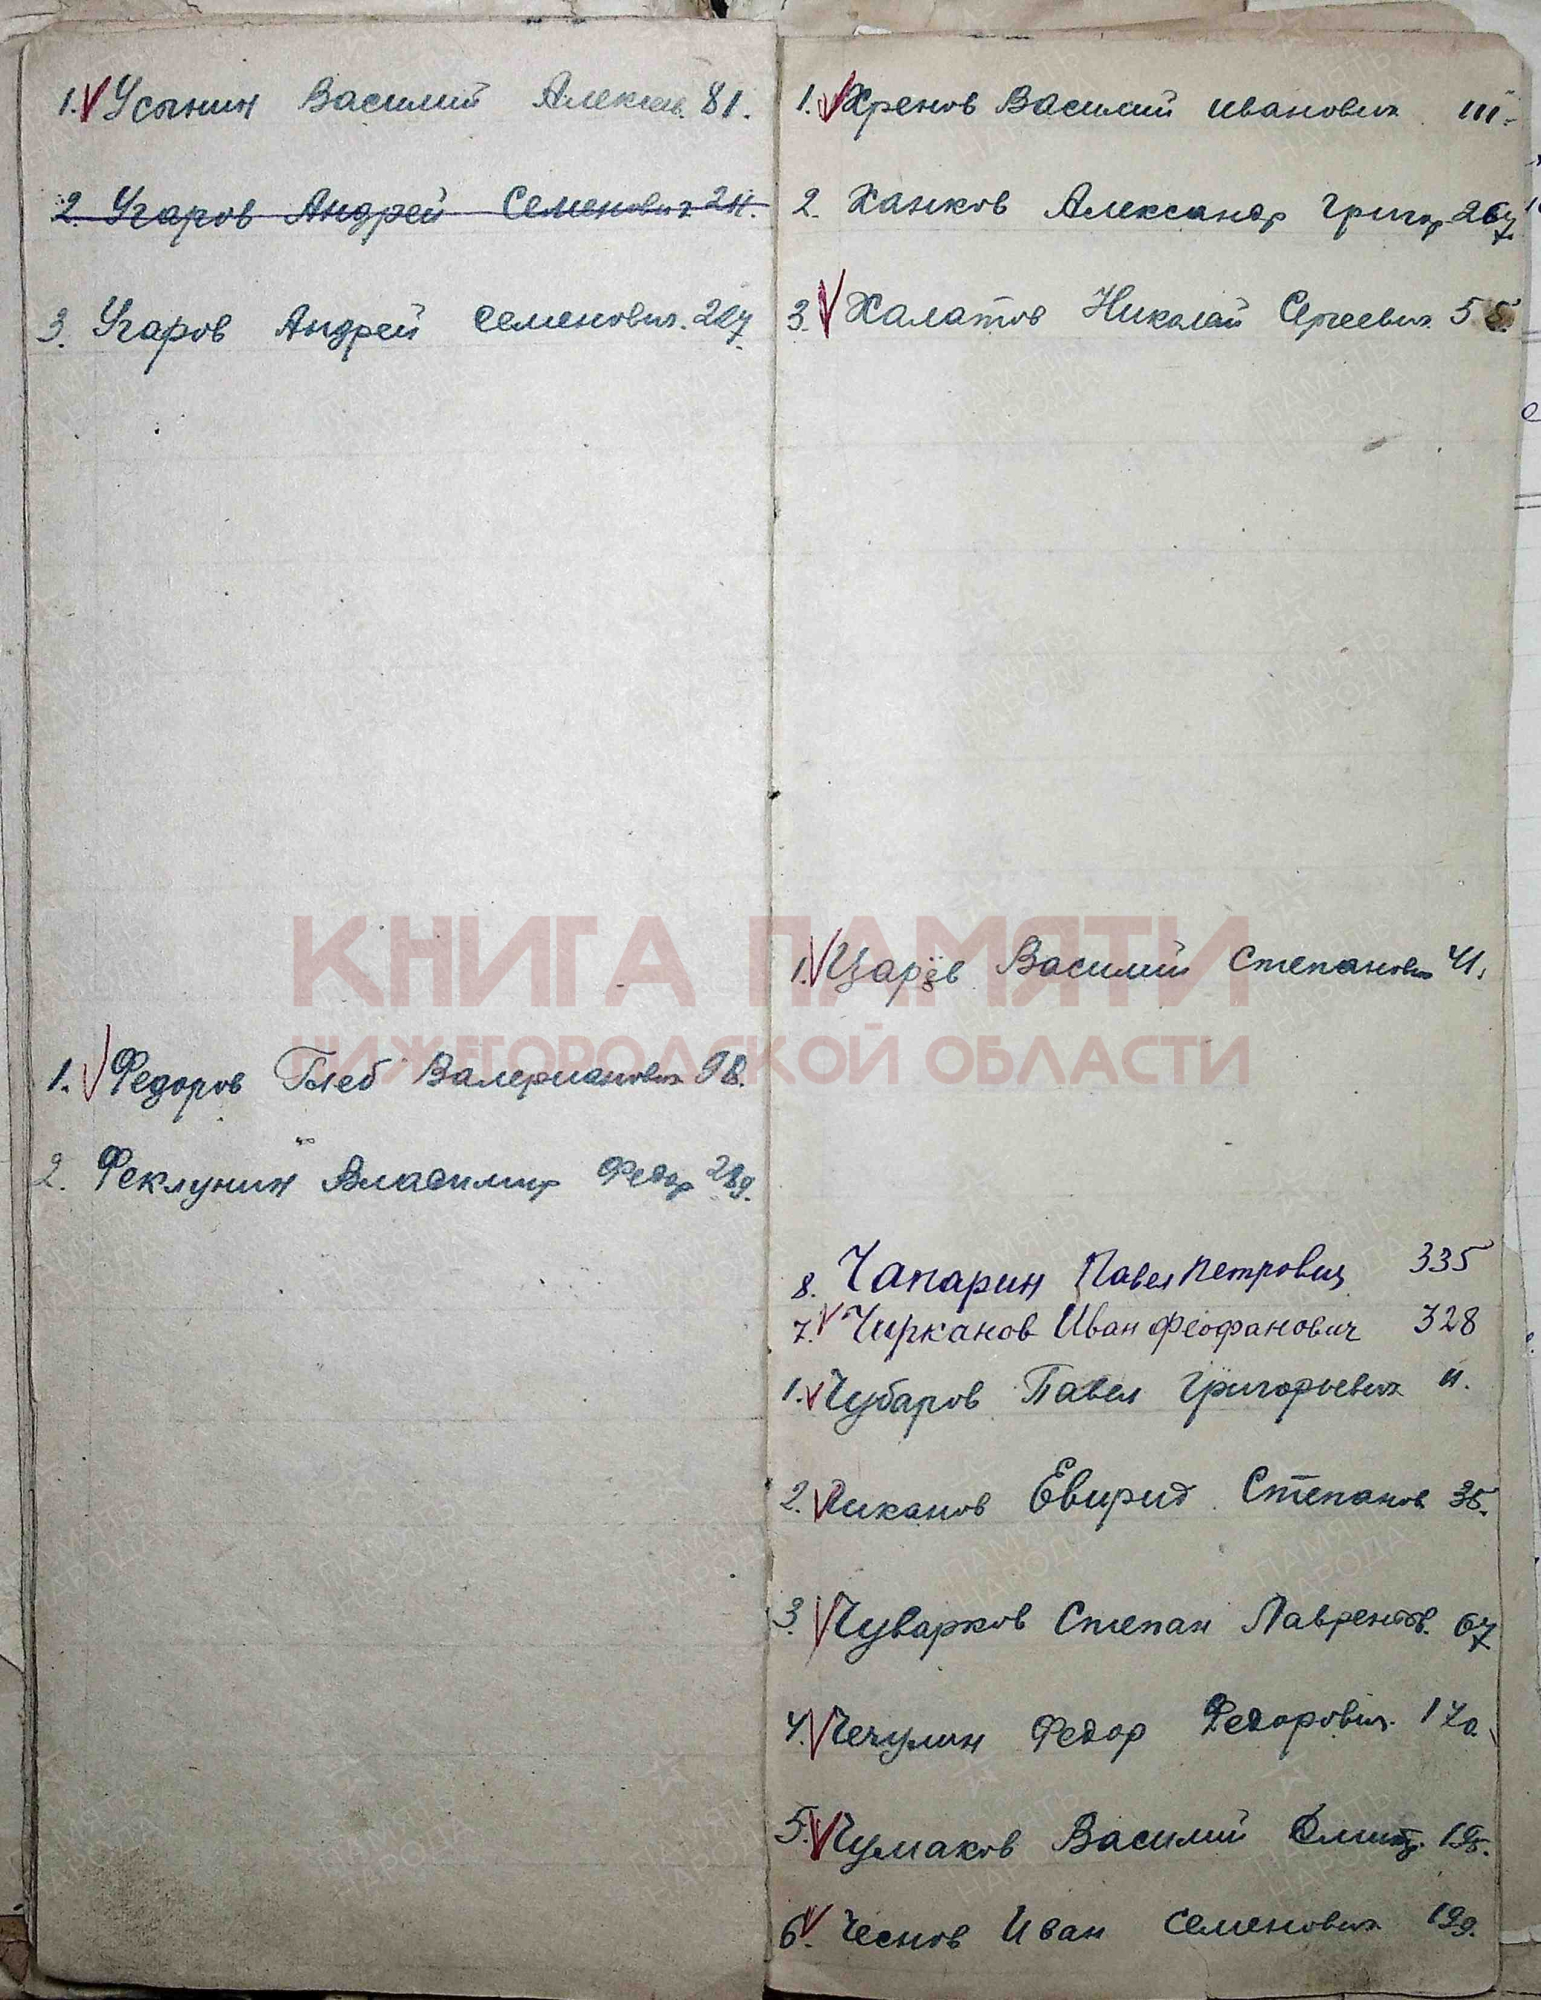 1. Усынин Василий Алексеев. 81.
2. Угаров Андрей Семенович 211.
3. Угаров Андрей Семенович. 207.
1. Федоров Глеб Валерианович 98.
2. Феклунин Владимир Федор 289.
1. Хренов Василий Иванович 111.
2. Ханков Александр Григор 267
3. Халатов Николай Сергеевич 55
1. Царёв Василий Степанович 41.
8. Чапарин Павел Петрович 335
7. Чирканов Иван Феофанович 328
1. Чубаров Павел Григорьевич 11.
2. Чиканов Евирид Степанов 35.
3. Чуварков Степан Лаврентьев. 67
4. Чечулин Федор Федорович. 170.
5. Чумаков Василий Дмитр. 195.
6. Чеснов Иван Семенович 199.
КНИГА ПАМЯТИ
НИЖЕГОРОДСКОЙ ОБЛАСТИ
ПАМЯТЬ НАРОДА